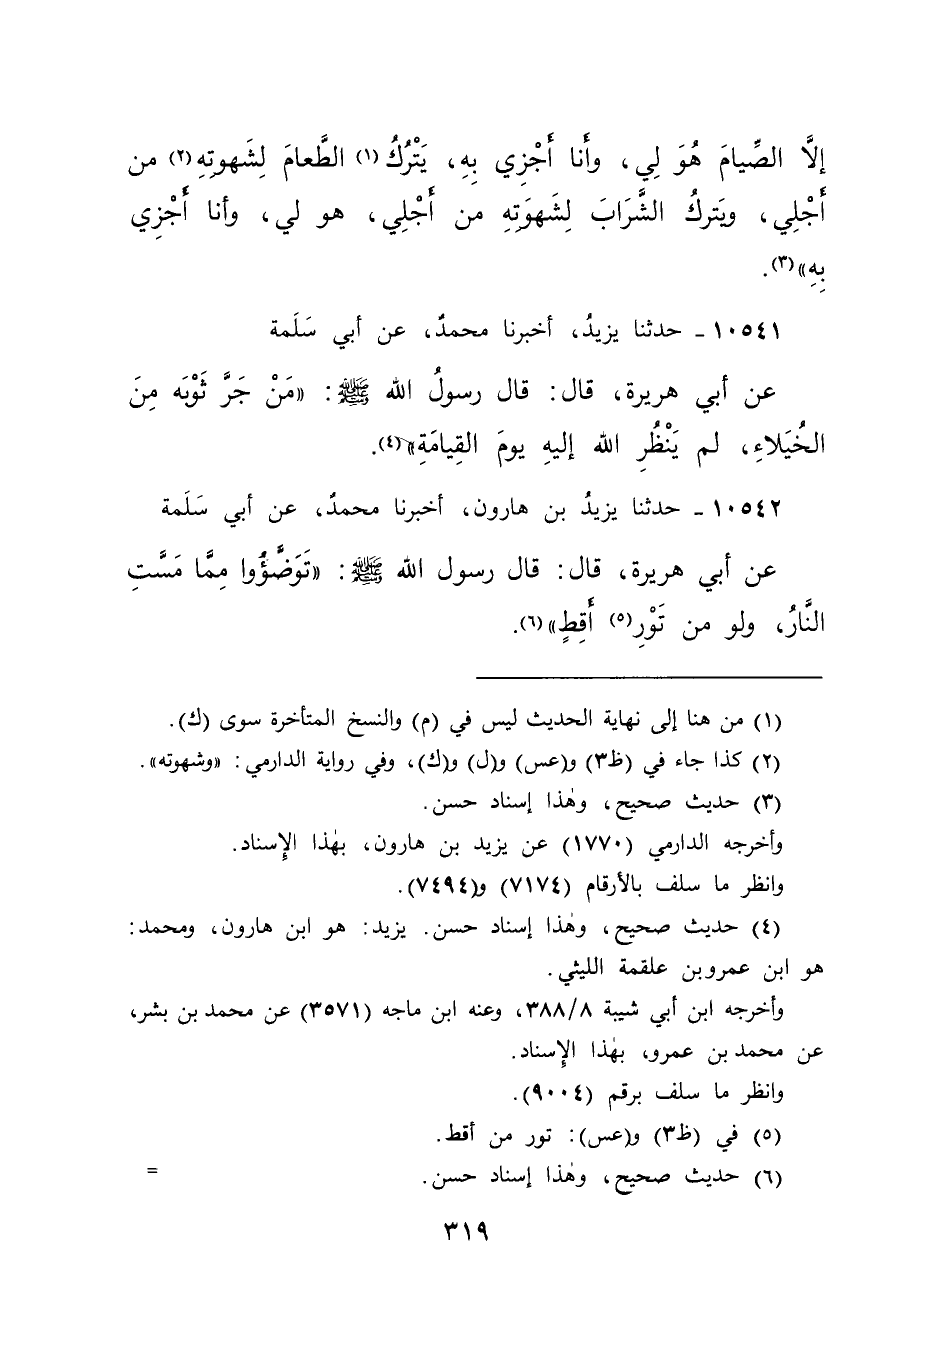 إلَّا الصِّيامَ هُوَ لِي، وأَنا أَجْزِي بِهِ، يَتْرُكُ(١) الطَّعامَ لِشَهوتِه(٢) من
أَجْلِي، ويَتركُ الشَّرَابَ لِشَهوَتِهِ من أَجْلِي، هو لي، وأنا أَجْزِي
بِهِ»(٣).
١٠٥٤١ ـ حدثنا يزيدُ، أخبرنا محمدٌ، عن أبي سَلَمة
عن أبي هريرة، قال: قال رسولُ الله ﷺ: «مَنْ جَرَّ ثَوْبَه مِنَ
الخُيَلاءِ، لم يَنْظُرِ الله إليهِ يومَ القِيامَةِ»(٤).
١٠٥٤٢ ـ حدثنا يزيدُ بن هارون، أخبرنا محمدٌ، عن أبي سَلَمة
عن أبي هريرة، قال: قال رسول الله ﷺ: «تَوَضَّؤُوا مِمَّا مَسَّتِ
النَّارُ، ولو من تَوْرِ(٥) أَقِطٍ»(٦).
(١) من هنا إلى نهاية الحديث ليس في (م) والنسخ المتأخرة سوى (ك).
(٢) كذا جاء في (ظ٣) و(عس) و(ل) و(ك)، وفي رواية الدارمي: «وشهوته».
(٣) حديث صحيح، وهٰذا إسناد حسن.
وأخرجه الدارمي (١٧٧٠) عن يزيد بن هارون، بهٰذا الإسناد.
وانظر ما سلف بالأرقام (٧١٧٤) و(٧٤٩٤).
(٤) حديث صحيح، وهٰذا إسناد حسن. يزيد: هو ابن هارون، ومحمد:
هو ابن عمرو بن علقمة الليثي.
وأخرجه ابن أبي شيبة ٣٨٨/٨، وعنه ابن ماجه (٣٥٧١) عن محمد بن بشر،
عن محمد بن عمرو، بهٰذا الإسناد.
وانظر ما سلف برقم (٩٠٠٤).
(٥) في (ظ٣) و(عس): تور من أقط.
(٦) حديث صحيح، وهٰذا إسناد حسن. =
٣١٩